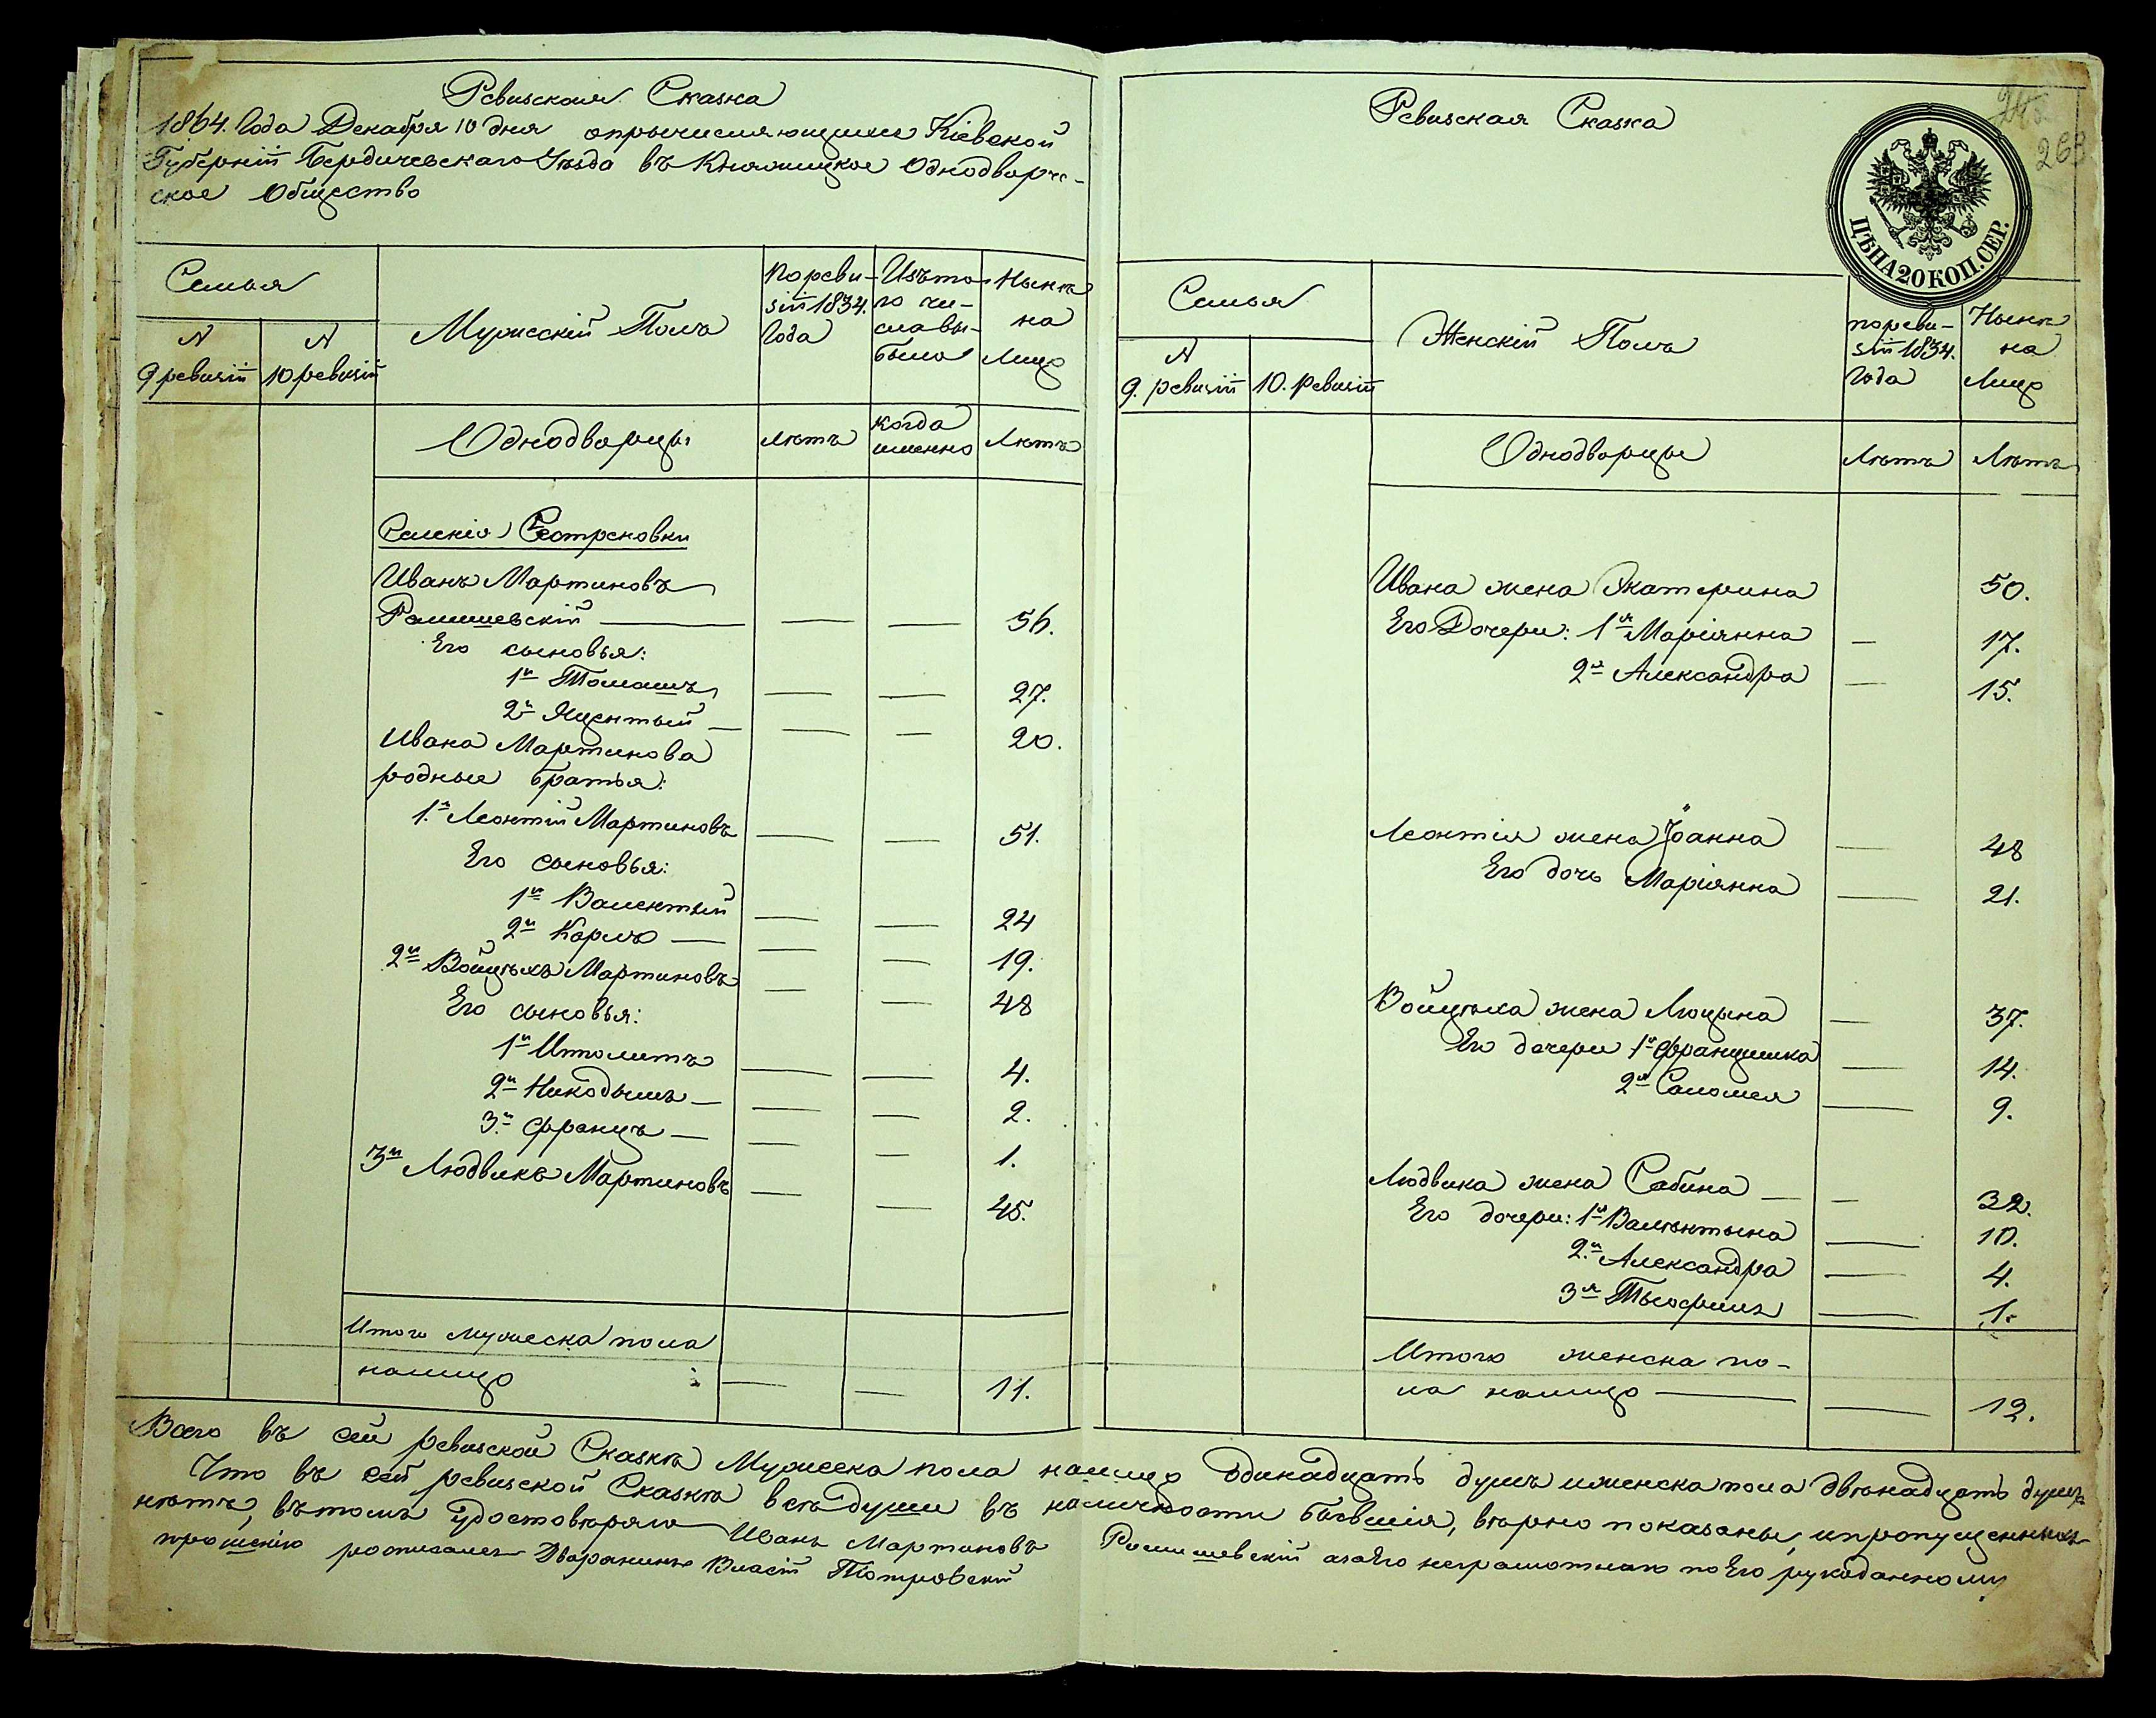 Ревизская Сказка
1864. Года Декабря 10 дня опричисляющихся Кіевской
Губерніи Бердичевскаго Уѣзда въ Княжицкое Однодворче-
ское Общество
Семья
N
9 ревизіи
N
10 ревизіи
Мужескій Полъ
По реви-
зіи 1834.
Года
Изъ то-
го чи-
сла вы-
было
Нынѣ
на
Лицо
Однодворцы
Лѣтъ
когда
именно
Лѣтъ
Селенія Сестреновки
Иванъ Мартиновъ
Ромишевскій — — — 56.
Его сыновья:
1й Томашъ — — 27.
2й Яцентый — — — 20.
Ивана Мартинова
родные братья:
1й Леонтій Мартиновъ — — 51.
Его сыновья:
1й Валентый — — 24
2й Карлъ — — — 19.
2й Войцѣхъ Мартиновъ — — 48
Его сыновья:
1й Иполитъ — — 4.
2й Никодымъ — — — 2.
3й Францъ — — — 1.
3й Людвикъ Мартиновъ — — 45.
Итого мужеска пола
налицо — — 11.
Ревизская Сказка
263
ЦѢНА 20 КОП. СЕР.
Семья
N
9. ревизіи
10. Ревизіи
Женскій Полъ
по реви-
зіи 1834.
Года
Нынѣ
на
Лицо
Однодворцы
Лѣтъ
Лѣтъ
Ивана жена Екатерина 50.
Его Дочери: 1я Маріянна — 17.
2я Александра — 15.
Леонтія жена Іоанна — 48
Его дочь Маріянна — 21.
Войцѣха жена Люцына — 37.
Его дочери 1я Францишка — 14.
2я Саломея — 9.
Людвика жена Сабина — — 32.
Его дочери: 1я Валѣнтына — 10.
2я Александра — 4.
3я Тыофиля — 1.
Итого женска по-
ла налицо — — 12.
Всего въ сей ревизской Сказкѣ Мужеска пола налицо одинадцать душъ и женска пола двѣнадцать душъ
Что въ сей ревизской Сказкѣ всѣ души въ наличности бывшія, вѣрно показаны, и пропущенныхъ
нѣтъ, въ томъ удостовѣряю Иванъ Мартиновъ Ромишевскій а за Его неграмотнаго по Его рукоданному
прошенію росписался Дворянинъ Власій Піотровскій